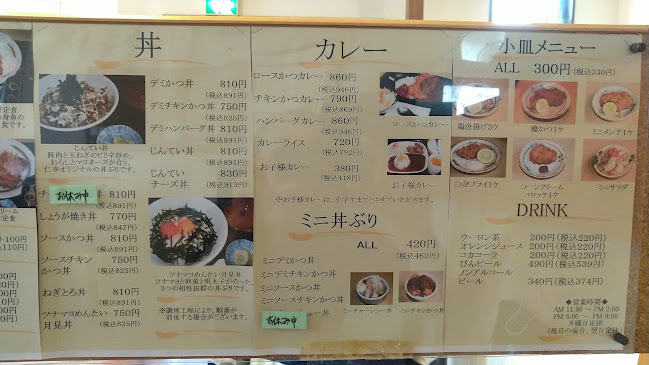 丼
デミかつ丼 810円
(税込891円)
デミチキンかつ丼 750円
(税込825円)
デミハンバーグ丼 810円
(税込891円)
じんてい丼 810円
(税込891円)
じんてい 830円
チーズ丼 (税込913円)
じんてい丼
豚肉と玉ねぎのピリ辛炒め。
おろしとマヨネーズが合う、
仁亭オリジナルの丼ぶりです。
お休み中 810円
(税込891円)
しょうが焼き丼 770円
(税込847円)
ソースかつ丼 810円
(税込891円)
ソースチキン 750円
かつ丼 (税込825円)
ねぎとろ丼 810円
(税込891円)
ツナマヨめんたい 750円
月見丼 (税込825円)
ツナマヨめんたい月見丼
ツナマヨと卵黄と明太子がのった
3つの相性抜群の丼ぶりです。
※調理工程により、順番が
前後する場合がございます。
カレー
ロースかつカレー 860円
(税込946円)
チキンかつカレー 790円
(税込869円)
ハンバーグカレー 860円
(税込946円)
カレーライス 720円
(税込792円)
お子様カレー 380円
(税込418円)
ロースかつカレー
お子様カレー
※お子様カレーは、小学生までとさせていただきます。
ミニ丼ぶり
ALL 420円
(税込462円)
ミニデミかつ丼
ミニデミチキンかつ丼
ミニソースかつ丼
ミニソースチキンかつ丼
お休み中
ミニチャーシュー丼
ミニチキンかつ丼
小皿メニュー
ALL 300円(税込330円)
鶏唐揚げ3ケ
鶏かつ1ケ
ミニメンチ1ケ
白身フライ1ケ
コーンクリーム
コロッケ1ケ
ミニサラダ
DRINK
ウーロン茶 200円(税込220円)
オレンジジュース 200円(税込220円)
コカコーラ 200円(税込220円)
びんビール 490円(税込539円)
ノンアルコール
ビール 340円(税込374円)
◆営業時間◆
AM 11:00 ～ PM 2:00
PM 5:00 ～ PM 9:00
月曜日定休
(祝日の場合、翌日定休)